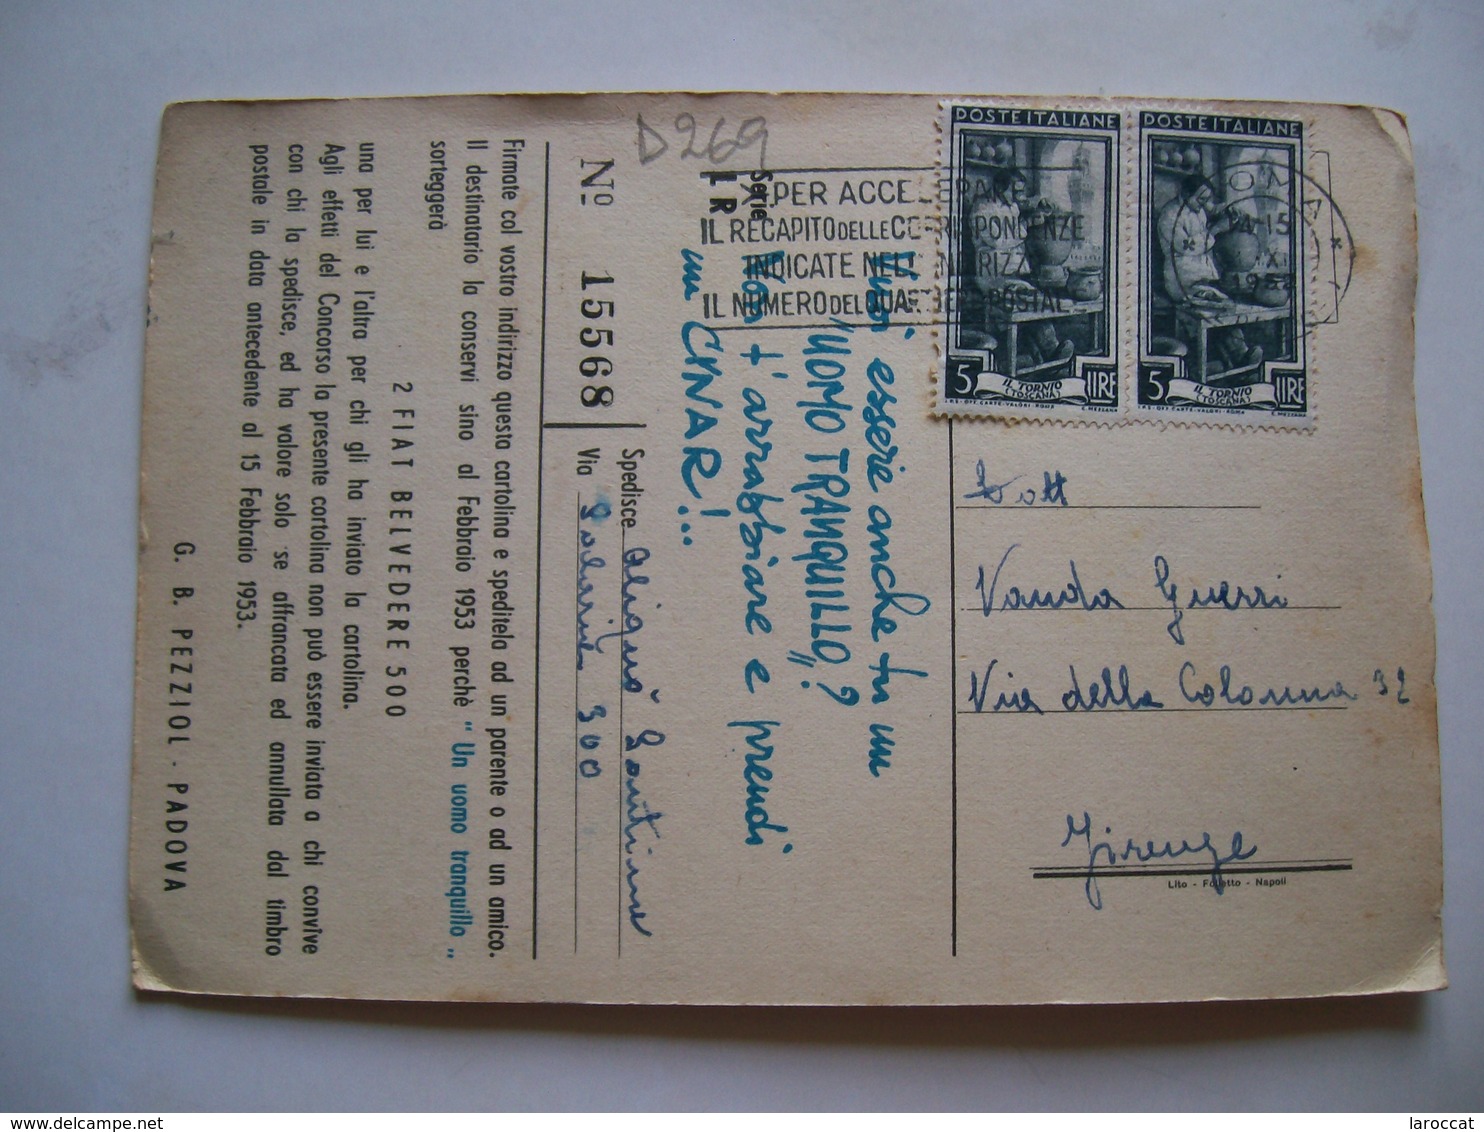 D 269
POSTE ITALIANE
5 LIRE
IL TORNIO
(TOSCANA)
I.P.S. OFF. CARTE-VALORI - ROMA
C. MEZZANA
POSTE ITALIANE
5 LIRE
IL TORNIO
(TOSCANA)
I.P.S. OFF. CARTE-VALORI - ROMA
C. MEZZANA
ROMA
14-15
XI
PER ACCELERARE
IL RECAPITO DELLE CORRISPONDENZE
INDICATE NELL'INDIRIZZO
IL NUMERO DEL QUARTIERE POSTALE
Dott
Vanda Guerri
Via della Colonna 32
Firenze
Lito - Folletto - Napoli
Vuoi essere anche tu un
"UOMO TRANQUILLO"?
Non t'arrabbiare e prendi
un CYNAR!..
Serie
1 R
Nº 15568
Spedisce
Via Salaria 300
Firmate col vostro indirizzo questa cartolina e speditela ad un parente o ad un amico.
Il destinatario la conservi sino al Febbraio 1953 perchè "Un uomo tranquillo"
sorteggerà
2 FIAT BELVEDERE 500
una per lui e l'altra per chi gli ha inviato la cartolina.
Agli effetti del Concorso la presente cartolina non può essere inviata a chi convive
con chi la spedisce, ed ha valore solo se affrancata ed annullata dal timbro
postale in data antecedente al 15 Febbraio 1953.
G. B. PEZZIOL - PADOVA
www.delcampe.net
laroccat